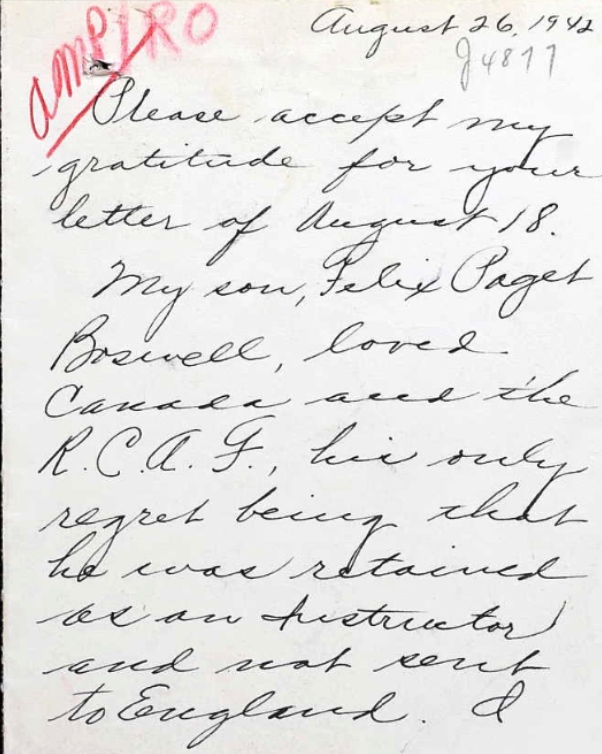 AMP/RO
August 26, 1942
J4877
Please accept my
gratitude for your
letter of August 18.
My son, Felix Paget
Boswell, loved
Canada and the
R.C.A.F., his only
regret being that
he was retained
as an Instructor
and not sent
to England. I